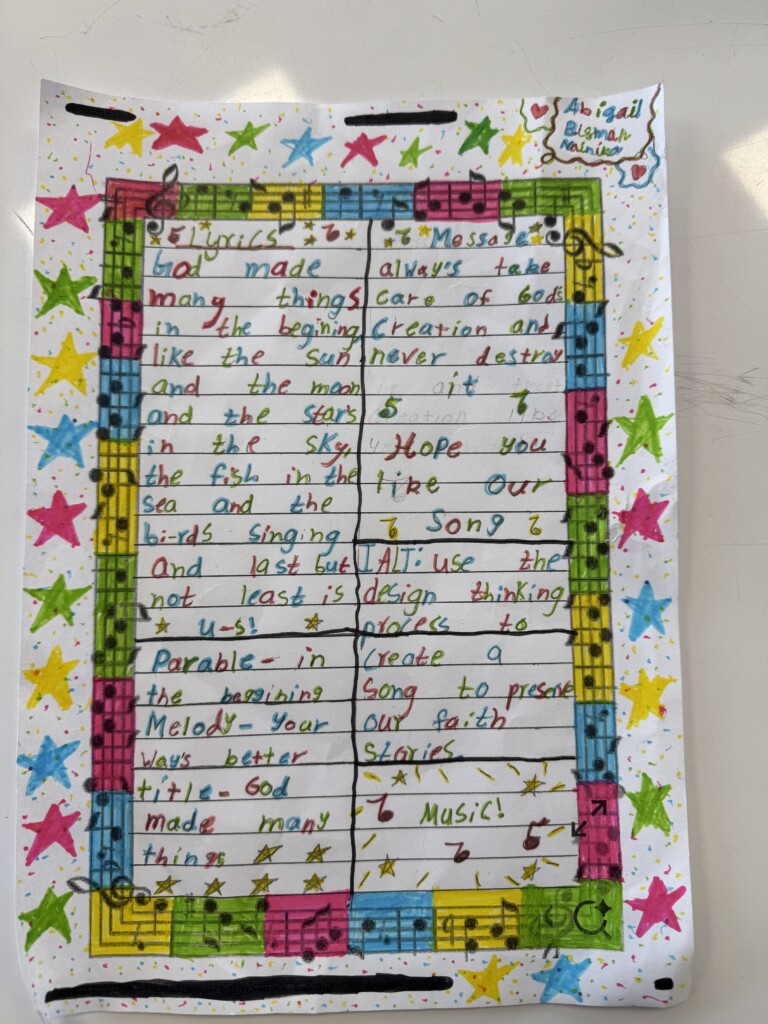 Abigail
Bisman
Nainika
Lyrics
God made
many things
in the begining
like the sun
and the moon
and the stars
in the sky,
the fish in the
sea and the
bi-rds singing
and last but
not least is
u-s!
Parable- in
the beggining
Melody- your
way's better
title- God
made many
things
Message
always take
care of Gods
Creation and
never destray
it
Hope you
like our
Song
IALT: use the
design thinking
process to
create a
Song to preserve
our faith
stories.
Music!